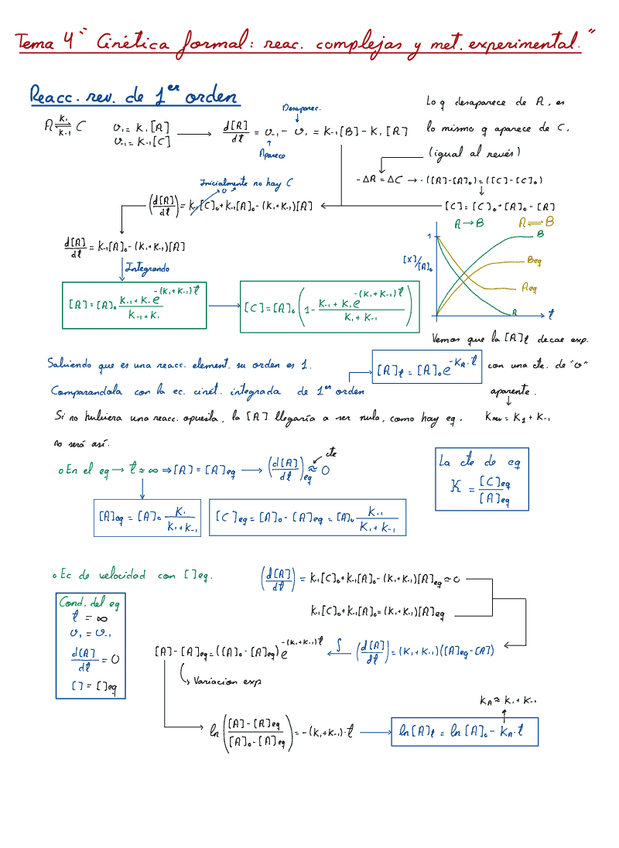 Tema 4 "Cinética formal: reac. complejas y met. experimental."
Reacc. rev. de 1er orden
A ⇌ C
K₁
K₋₁
v₁ = K₁[A]
v₋₁ = K₋₁[C]
Desaparec.
d[A]/dt = v₋₁ - v₁ = K₋₁[B] - K₁[A]
Aparece
Lo q desaparece de A, es
lo mismo q aparece de C,
(igual al revés)
-ΔA = ΔC → -([A]-[A]₀) = ([C]-[C]₀)
[C] = [C]₀ + [A]₀ - [A]
Inicialmente no hay C
(d[A]/dt) = K₋₁[C]₀ + K₋₁[A]₀ - (K₁+K₋₁)[A]
d[A]/dt = K₋₁[A]₀ - (K₁+K₋₁)[A]
Integrando
[A] = [A]₀ (K₋₁ + K₁ e^-(K₁+K₋₁)t)/(K₋₁+K₁)
[C] = [A]₀ (1 - (K₋₁ + K₁ e^-(K₁+K₋₁)t)/(K₁+K₋₁))
A → B
A ⇌ B
1
[X]/[A]₀
B
Beq
Aeq
A
t
Vemos que la [A]t decae exp.
Sabiendo que es una reacc. element. su orden es 1.
[A]t = [A]₀ e^-KA·t
con una cte. de "v"
Comparandola con la ec. cinét. integrada de 1er orden
aparente.
Si no hubiera una reacc. opuesta, la [A] llegaría a ser nula, como hay eq.
= K₁ + K₋₁
no será así.
cte
En el eq → t ≈ ∞ ⇒ [A] = [A]eq → (d[A]/dt)eq ≈ 0
La cte de eq
K = [C]eq/[A]eq
[A]eq = [A]₀ K₁/(K₁+K₋₁)
[C]eq = [A]₀ - [A]eq = [A]₀ K₋₁/(K₁+K₋₁)
Ec de velocidad con []eq.
(d[A]/dt) = K₋₁[C]₀ + K₋₁[A]₀ - (K₁+K₋₁)[A]eq ≈ 0
Cond. del eq
t = ∞
v₁ = v₋₁
d[A]/dt = 0
[] = []eq
K₋₁[C]₀ + K₋₁[A]₀ = (K₁+K₋₁)[A]eq
[A] - [A]eq = ([A]₀ - [A]eq) e^-(K₁+K₋₁)t
∫
(d[A]/dt) = (K₁+K₋₁)([A]eq - [A])
Variacion exp
KA ≈ K₁ + K₋₁
ln([A]-[A]eq/[A]₀-[A]eq) = -(K₁+K₋₁)·t
ln[A]t = ln[A]₀ - KA·t